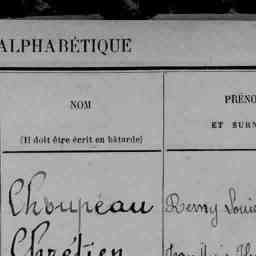 ALPHABÉTIQUE
NOM
(Il doit être écrit en bâtarde)
PRÉNO
ET SURN
Choupeau Remy Louis
Chrétien